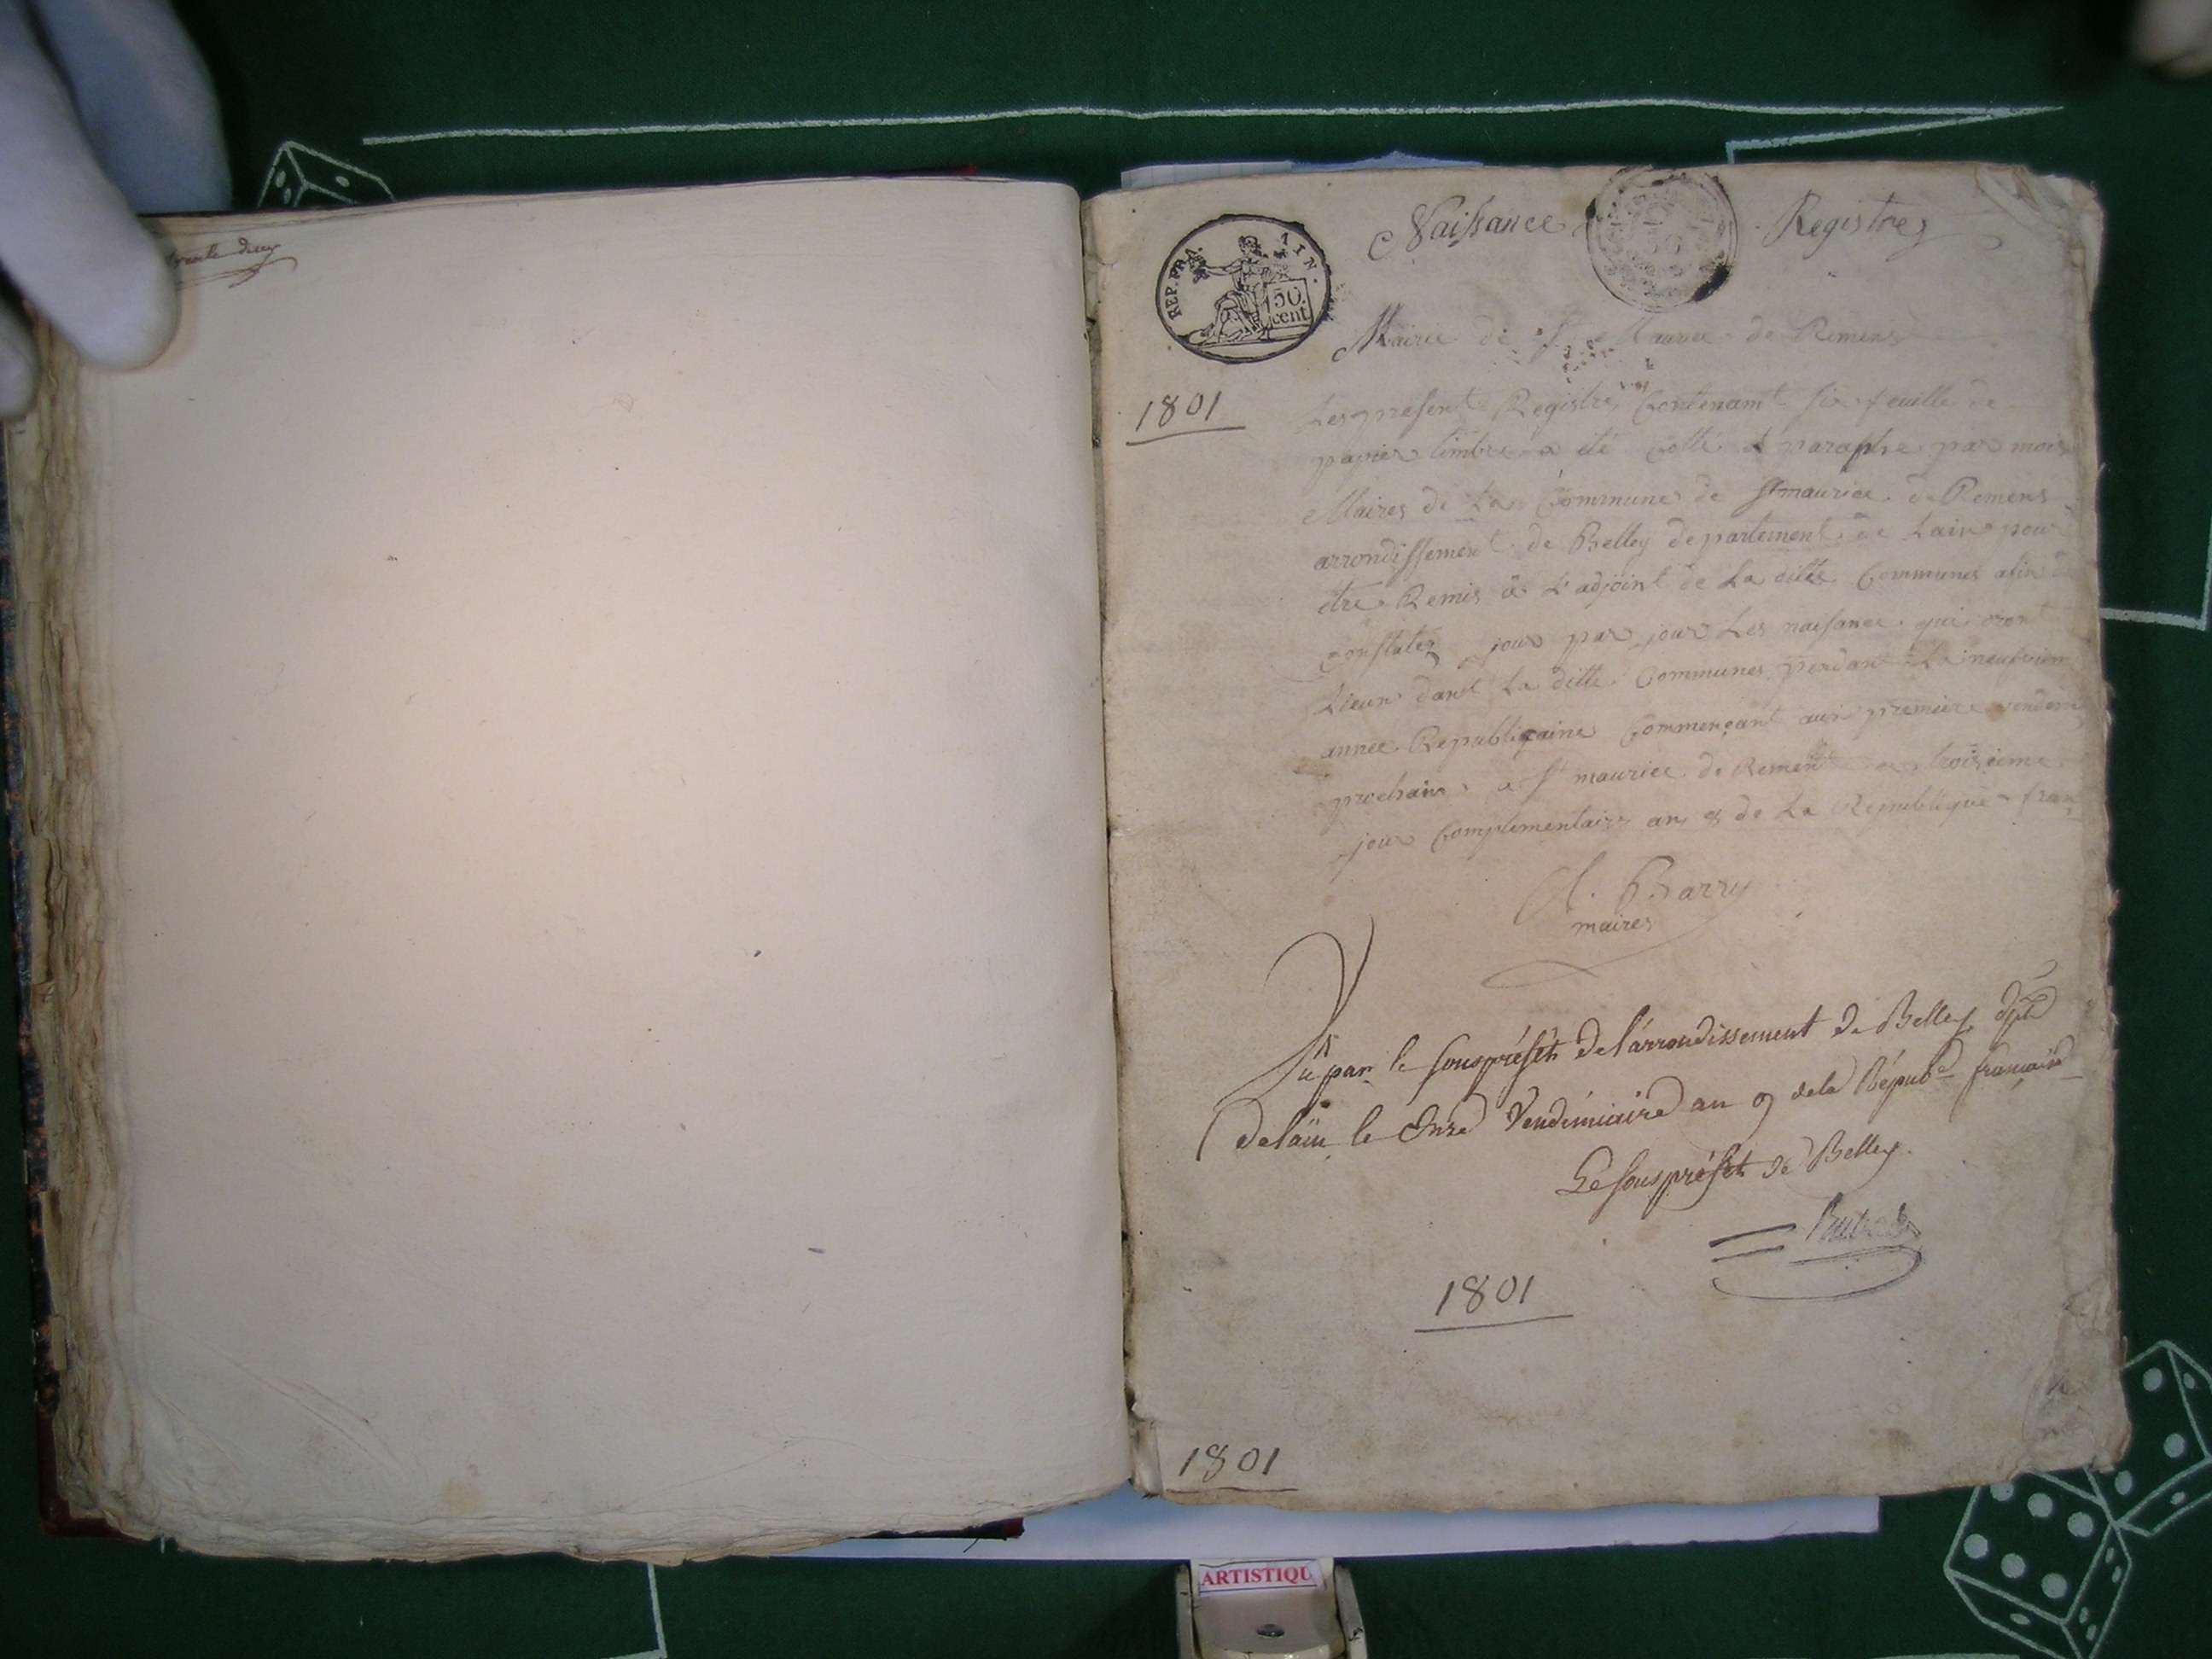 trente deux
Naissance Registres
REP. FRA. AIN.
50
cent
Mairie de St Maurice de Remens
1801
Les present Registre Contenant six feuille de
papier timbre a été cotté et paraphe par moi
Maires de La Commune de St maurice de Remens
arrondissement de Belley departement de Lain pour
être Remis a L'adjoint de La ditte Communes afin
constater jour par jour Les naisance qui oront
Lieux dant La ditte Communes pendant La neuvieme
année Republicaine Commençant aux premiere vendem
prochain a St maurice de Remens troisieme
jour Complementaires an 8 de La Republique fran
Barry
maires
Vû par le Sous préfet de l'arrondissement de Belley, dépt
de l'ain, le Onze Vendémiaire an 9 de la Répub. française
Le Sous préfet de Belley.
1801
1801
ARTISTIQU